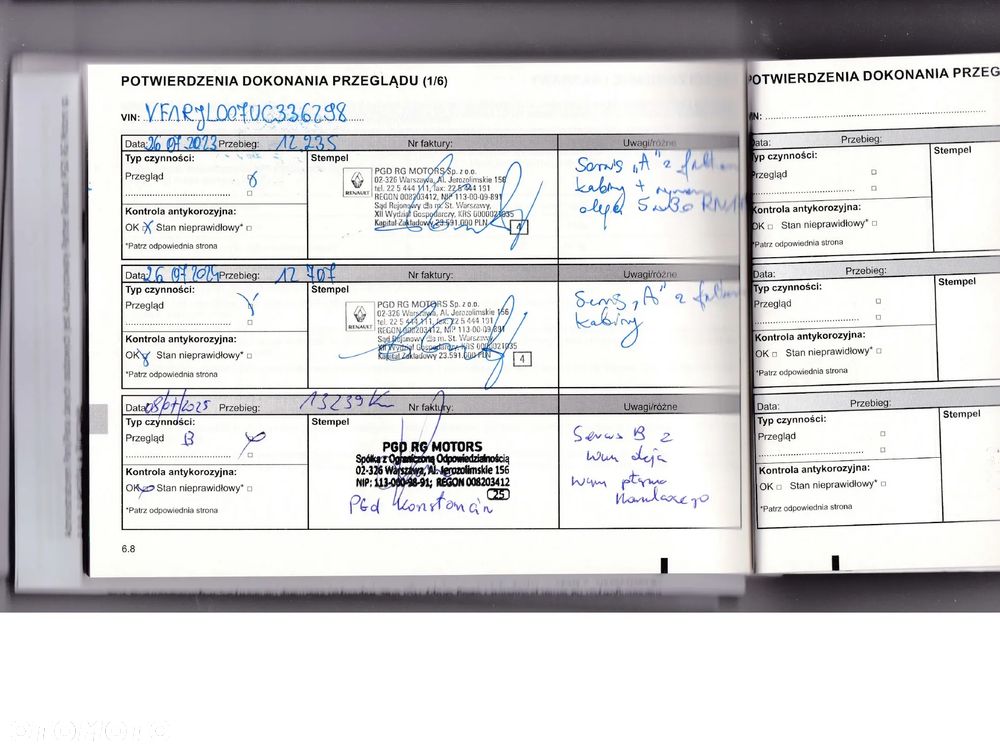 POTWIERDZENIA DOKONANIA PRZEGLĄDU (1/6)
VIN: VF1RJL007UC336298
Data: 26 07 2023 Przebieg: 12 235 Nr faktury: Uwagi/różne
Typ czynności: Stempel
Przegląd
Kontrola antykorozyjna:
OK X Stan nieprawidłowy* □
*Patrz odpowiednia strona
RENAULT
PGD RG MOTORS Sp. z o.o.
02-326 Warszawa, Al. Jerozolimskie 156
tel. 22 5 444 111, fax: 22 5 444 191
REGON 008203412, NIP 113-00-09-891
Sąd Rejonowy dla m. St. Warszawy,
XII Wydział Gospodarczy, KRS
Kapitał Zakładowy 23.591.000 PLN
4
Serwis "A" z filtrem
kabiny + wymiana
oleju 5w30
Data: 26 07 2024 Przebieg: 12 707 Nr faktury: Uwagi/różne
Typ czynności: Stempel
Przegląd
Kontrola antykorozyjna:
OK Stan nieprawidłowy* □
*Patrz odpowiednia strona
RENAULT
PGD RG MOTORS Sp. z o.o.
02-326 Warszawa, Al. Jerozolimskie 156
tel. 22 5 444 111, fax: 22 5 444 191
REGON 008203412, NIP 113-00-09-891
Sąd Rejonowy dla m. St. Warszawy,
XII Wydział Gospodarczy, KRS
Kapitał Zakładowy 23.591.000 PLN
4
Serwis "A" z filtrem
kabiny
Data: 08/07/2025 Przebieg: 13239 K Nr faktury: Uwagi/różne
Typ czynności: Stempel
Przegląd B
Kontrola antykorozyjna:
OK Stan nieprawidłowy* □
*Patrz odpowiednia strona
PGD RG MOTORS
Spółka z Ograniczoną Odpowiedzialnością
02-326 Warszawa, Al. Jerozolimskie 156
NIP: 113-000-98-91; REGON 008203412
25
PGd Konstancin
Serwis B z
wym oleju
wym płynu
hamulcowego
6.8
POTWIERDZENIA DOKONANIA PRZEG
Data: Przebieg:
Typ czynności: Stempel
Przegląd □
□
Kontrola antykorozyjna:
OK □ Stan nieprawidłowy* □
*Patrz odpowiednia strona
Data: Przebieg:
Typ czynności: Stempel
Przegląd □
□
Kontrola antykorozyjna:
OK □ Stan nieprawidłowy* □
*Patrz odpowiednia strona
Data: Przebieg:
Typ czynności: Stempel
Przegląd □
□
Kontrola antykorozyjna:
OK □ Stan nieprawidłowy* □
*Patrz odpowiednia strona
OTOMOTO